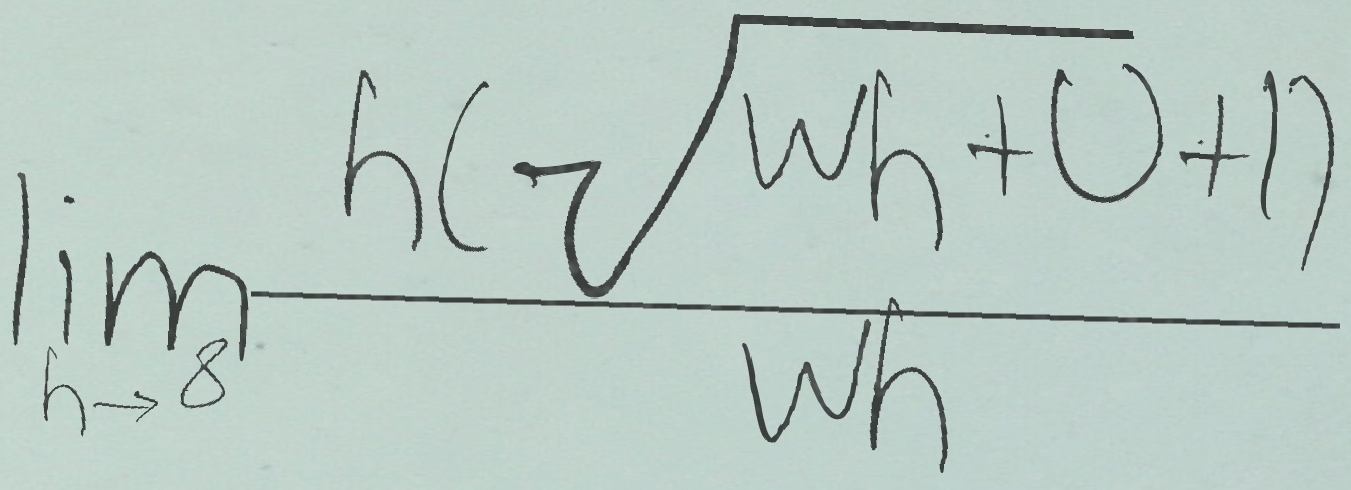 \lim_{h \to 8} \frac{h(-\sqrt{wh+0}+1)}{wh}